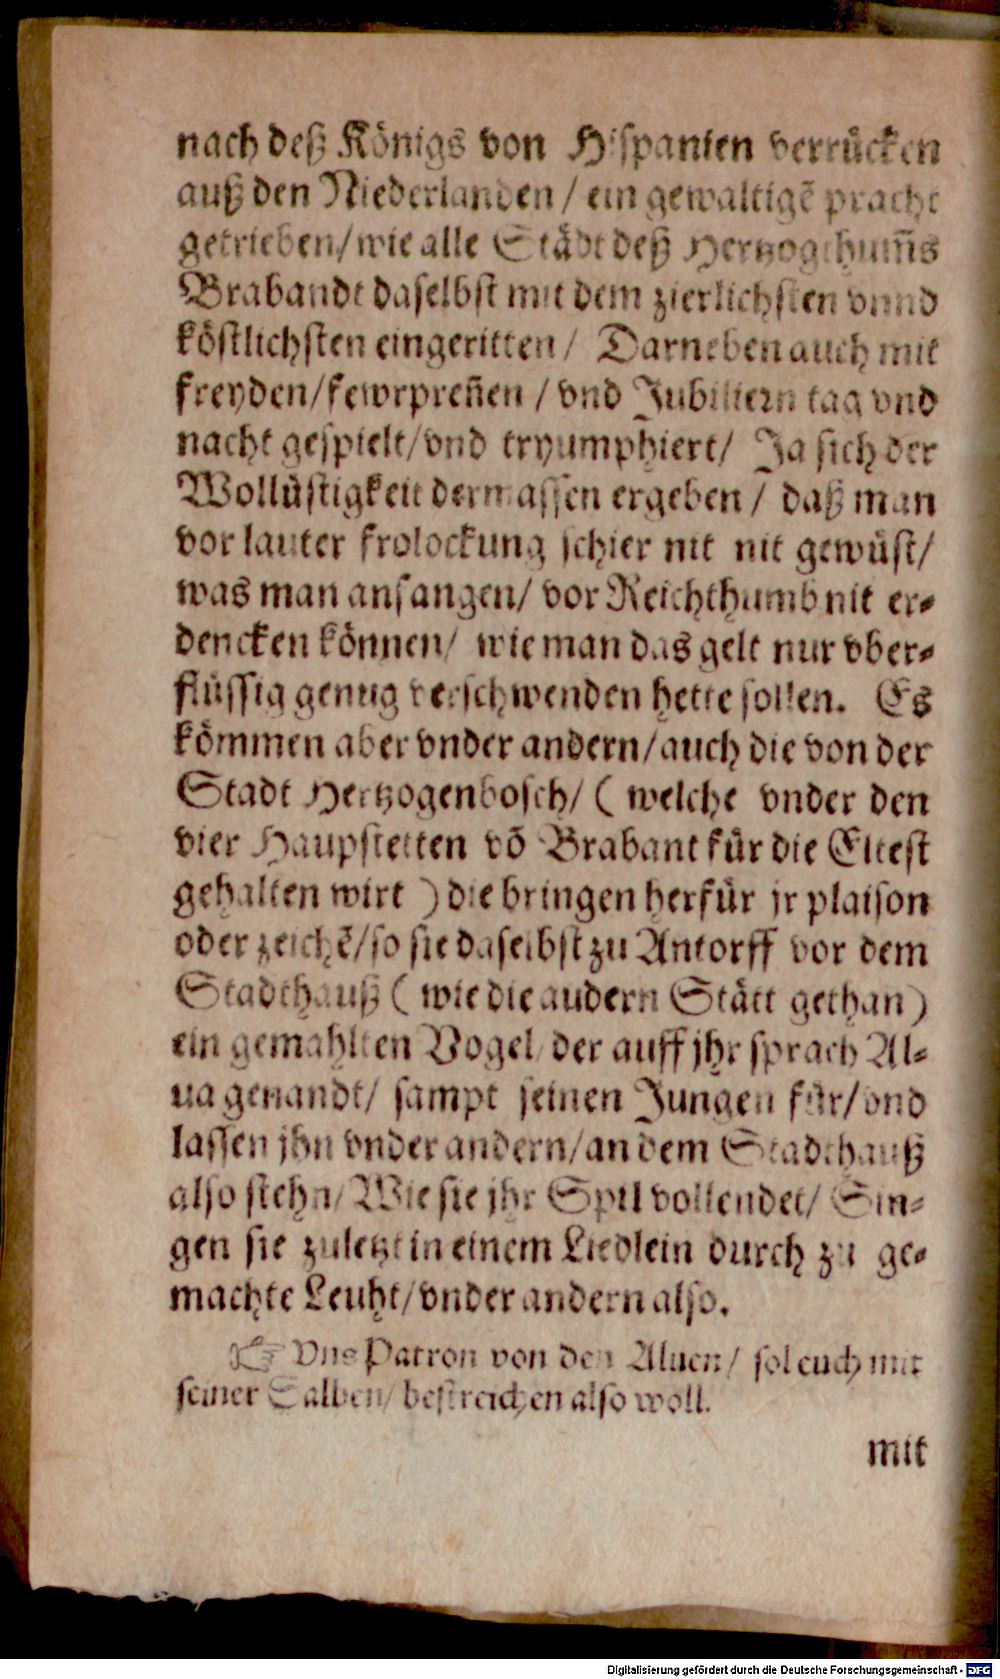 nach deß Königs von Hispanien verrücken
auß den Niederlanden / ein gewaltigẽ pracht
getrieben/ wie alle Städt deß Hertzogthum̃s
Brabandt daselbst mit dem zierlichsten vnnd
köstlichsten eingeritten / Darneben auch mit
freyden/fewrpreñen / vnd Jubiliern tag vnd
nacht gespielt/vnd tryumphiert/ Ja sich der
Wollüstigkeit dermassen ergeben / daß man
vor lauter frolockung schier nit nit gewüst/
was man anfangen/ vor Reichthumb nit er⸗
dencken können/ wie man das gelt nur vber⸗
flüssig genug verschwenden hette sollen. Es
kömmen aber vnder andern/auch die von der
Stadt Hertzogenbosch/ ( welche vnder den
vier Haupstetten võ Brabant für die Eltest
gehalten wirt ) die bringen herfür jr plaison
oder zeichẽ/so sie daselbst zu Antorff vor dem
Stadthauß ( wie die audern Stätt gethan)
ein gemahlten Vogel/ der auff jhr sprach Al⸗
ua genandt/ sampt seinen Jungen für/vnd
lassen jhn vnder andern/an dem Stadthauß
also stehn/ Wie sie jhr Spil vollendet/ Sin⸗
gen sie zuletzt in einem Liedlein durch zu ge⸗
machte Leuht/vnder andern also.
☞ Vns Patron von den Aluen/ sol euch mit
seiner Salben/ bestreichen also woll.
mit
Digitalisierung gefördert durch die Deutsche Forschungsgemeinschaft - DFG